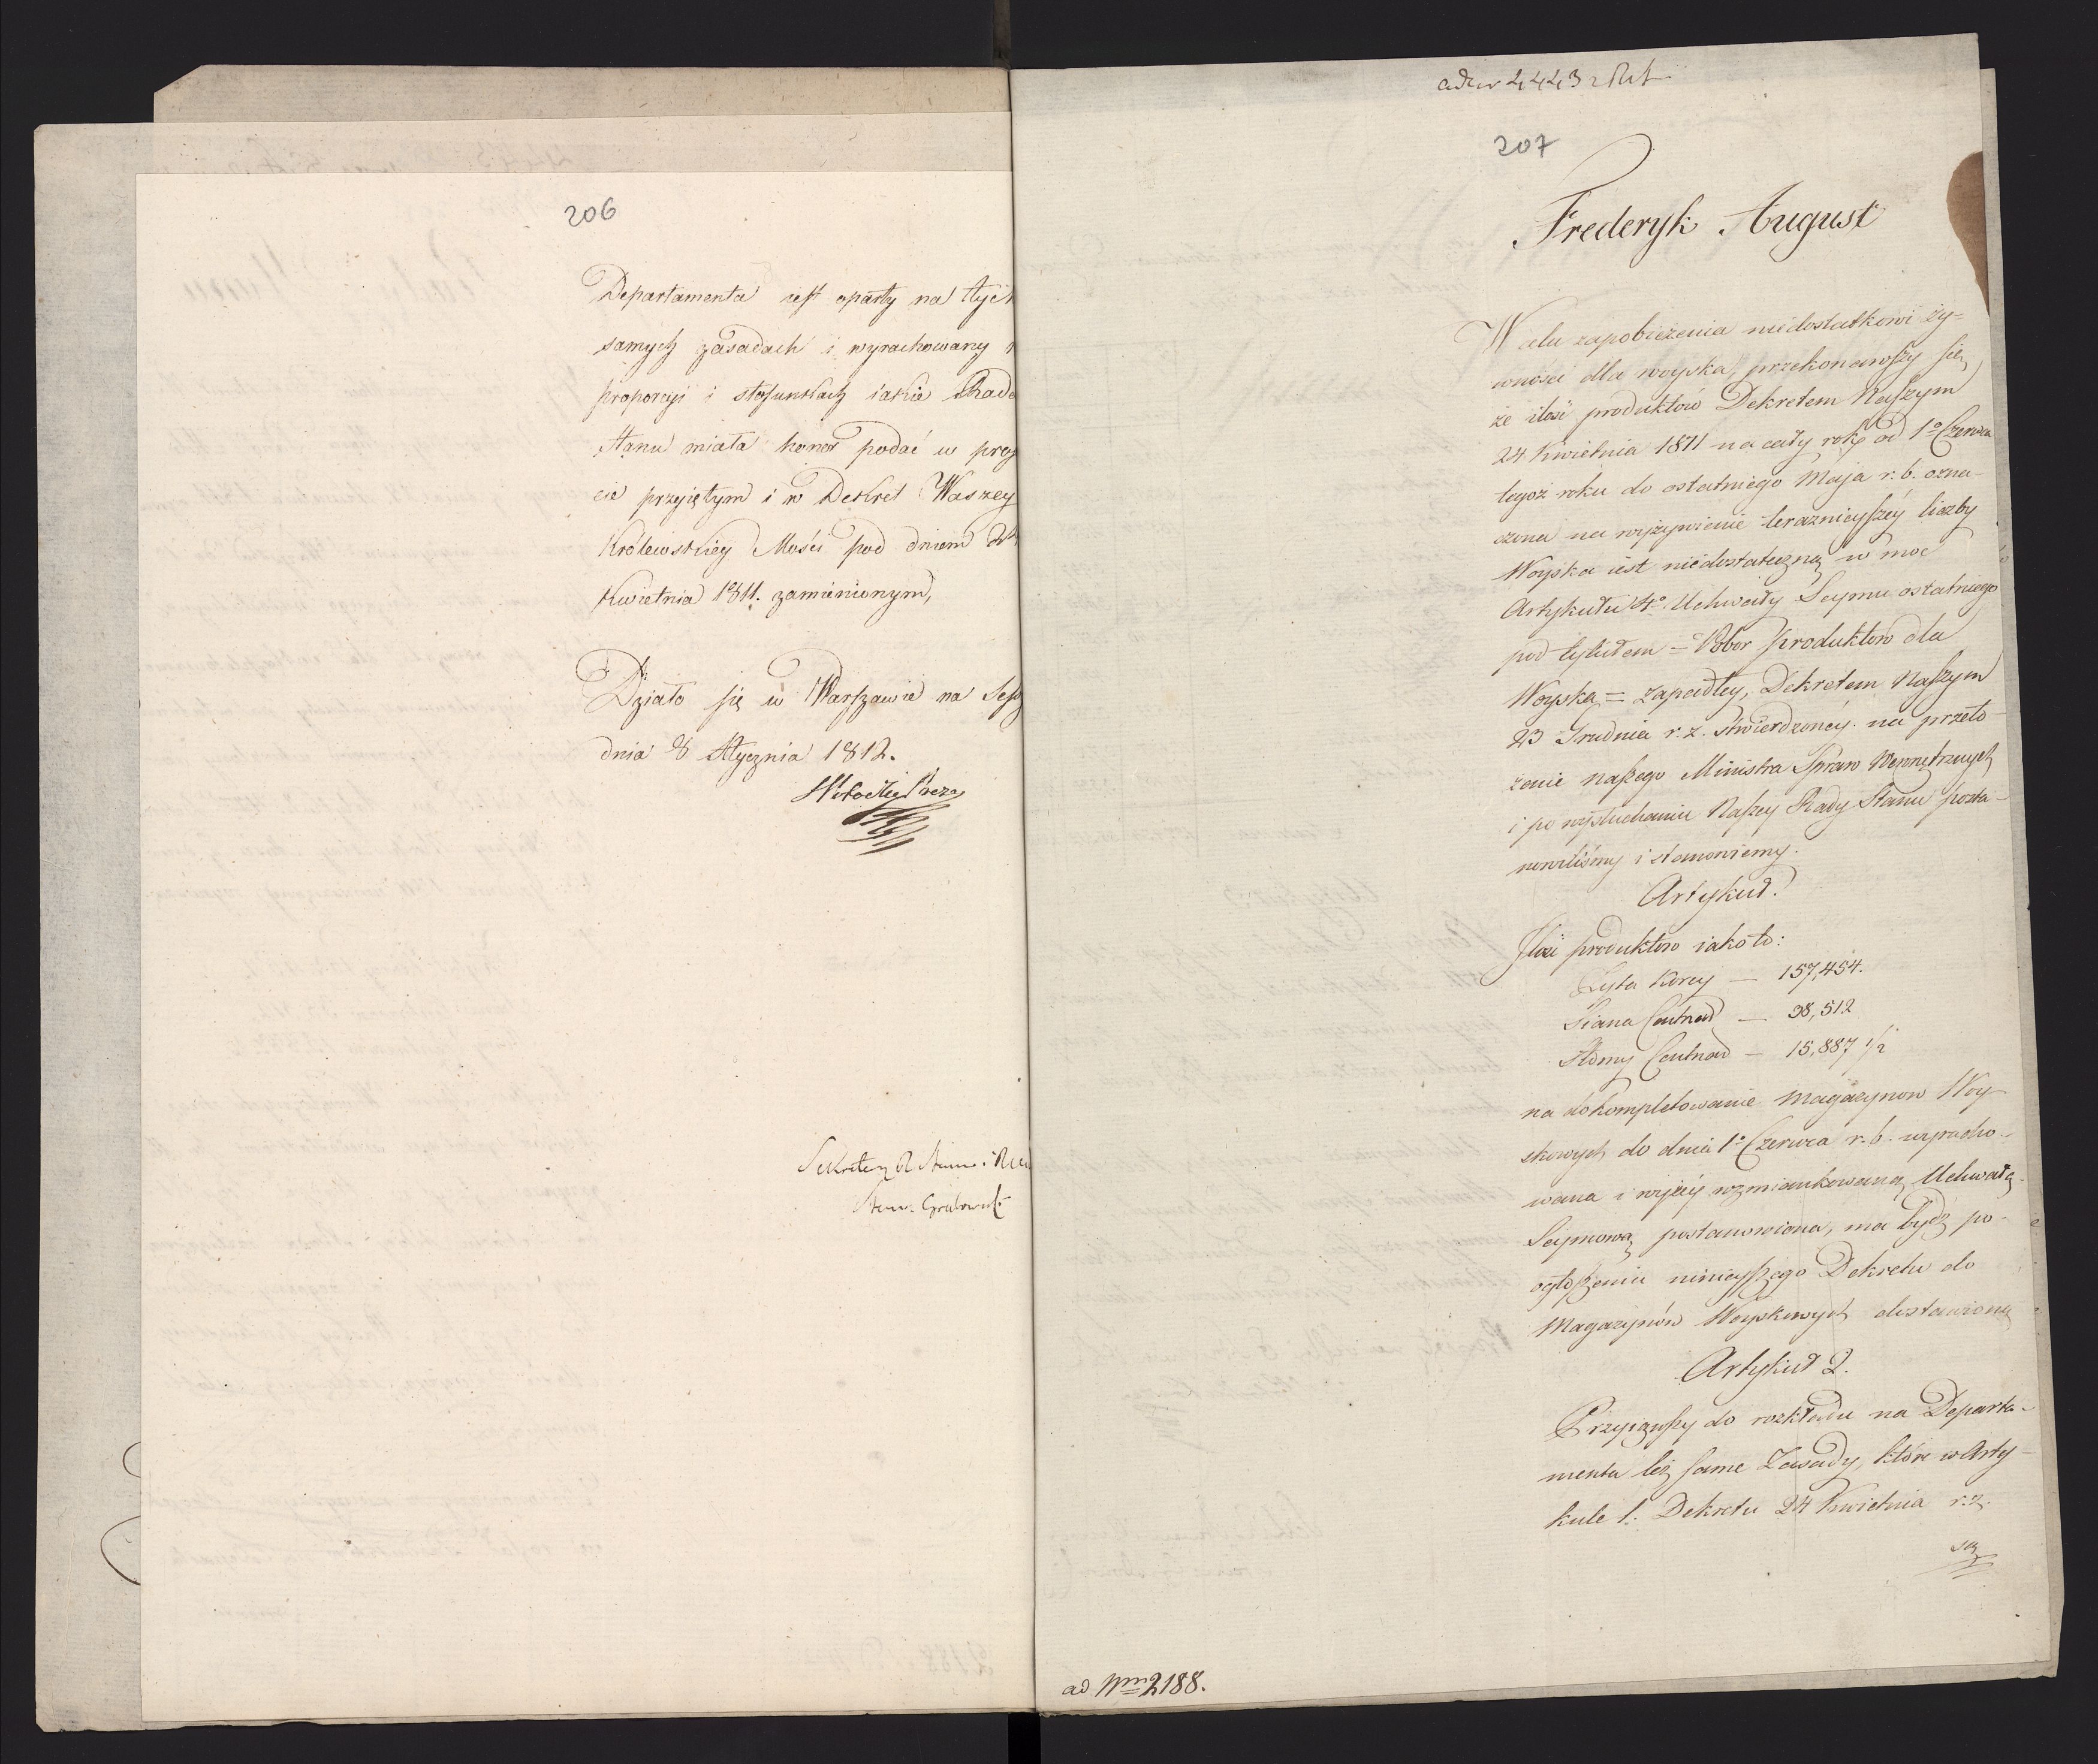 206
Departamenta iest oparty na tych
samych zasadach i wyrachowany
proporcyi i stosunkach iakie Rada
Stanu miała honor podać w proj
cie przyiętym i w Dekret Waszey
Królewskiey Mości pod dniem 24
Kwietnia 1811. zamienionym,
Działo się w Warszawie na Sess
dnia 8 Stycznia 1812.
Sekretarz R Stanu i
Stan: Grabowski
207
Frederyk August
W celu zapobieżenia niedostatkowi ży=
wności dla woyska, przekonawszy się,
że ilość produktów Dekretem Naszym
24 Kwietnia 1811 na cały rok od 1o Czerwca
tegoż roku do ostatniego Maja r. b. ozna-
czona na wyżywienie teraznieyszéy liczby
Woyska iest niedostateczną w moc
Artykułu 4o Uchwały Seymu ostatniego
pod tytułem = Pobor produktow dla
Woyska = zapadłey, Dekretem Naszym
23 Grudnia r. z. stwierdzonéy. na przeło-
żenie naszego Ministra Spraw Wewnętrznych
i po wysłuchaniu Naszey Rady Stanu posta-
nowiliśmy i stanowiemy.
Artykuł.
Ilość produktow iako to:
Żyta Korcy — 157,454.
Siana Centnar — 38,512
Słomy Centnar — 15,887 1/2
na dokompletowanie Magazynow Woy-
skowych do dnia 1o Czerwca r. b. wyracho-
wana i wyżéy wzmiankowaną Uchwałą
Seymową postanowiona, ma bydź po
ogłoszeniu ninieyszego Dekretu do
Magazynów Woyskowych dostawioną
Artykuł 2.
Przyiąwszy do rozkładu na Departa-
menta też same Zasady, które w Arty-
kule 1. Dekretu 24 Kwietnia r. z.
są
ad Nrum 2188.